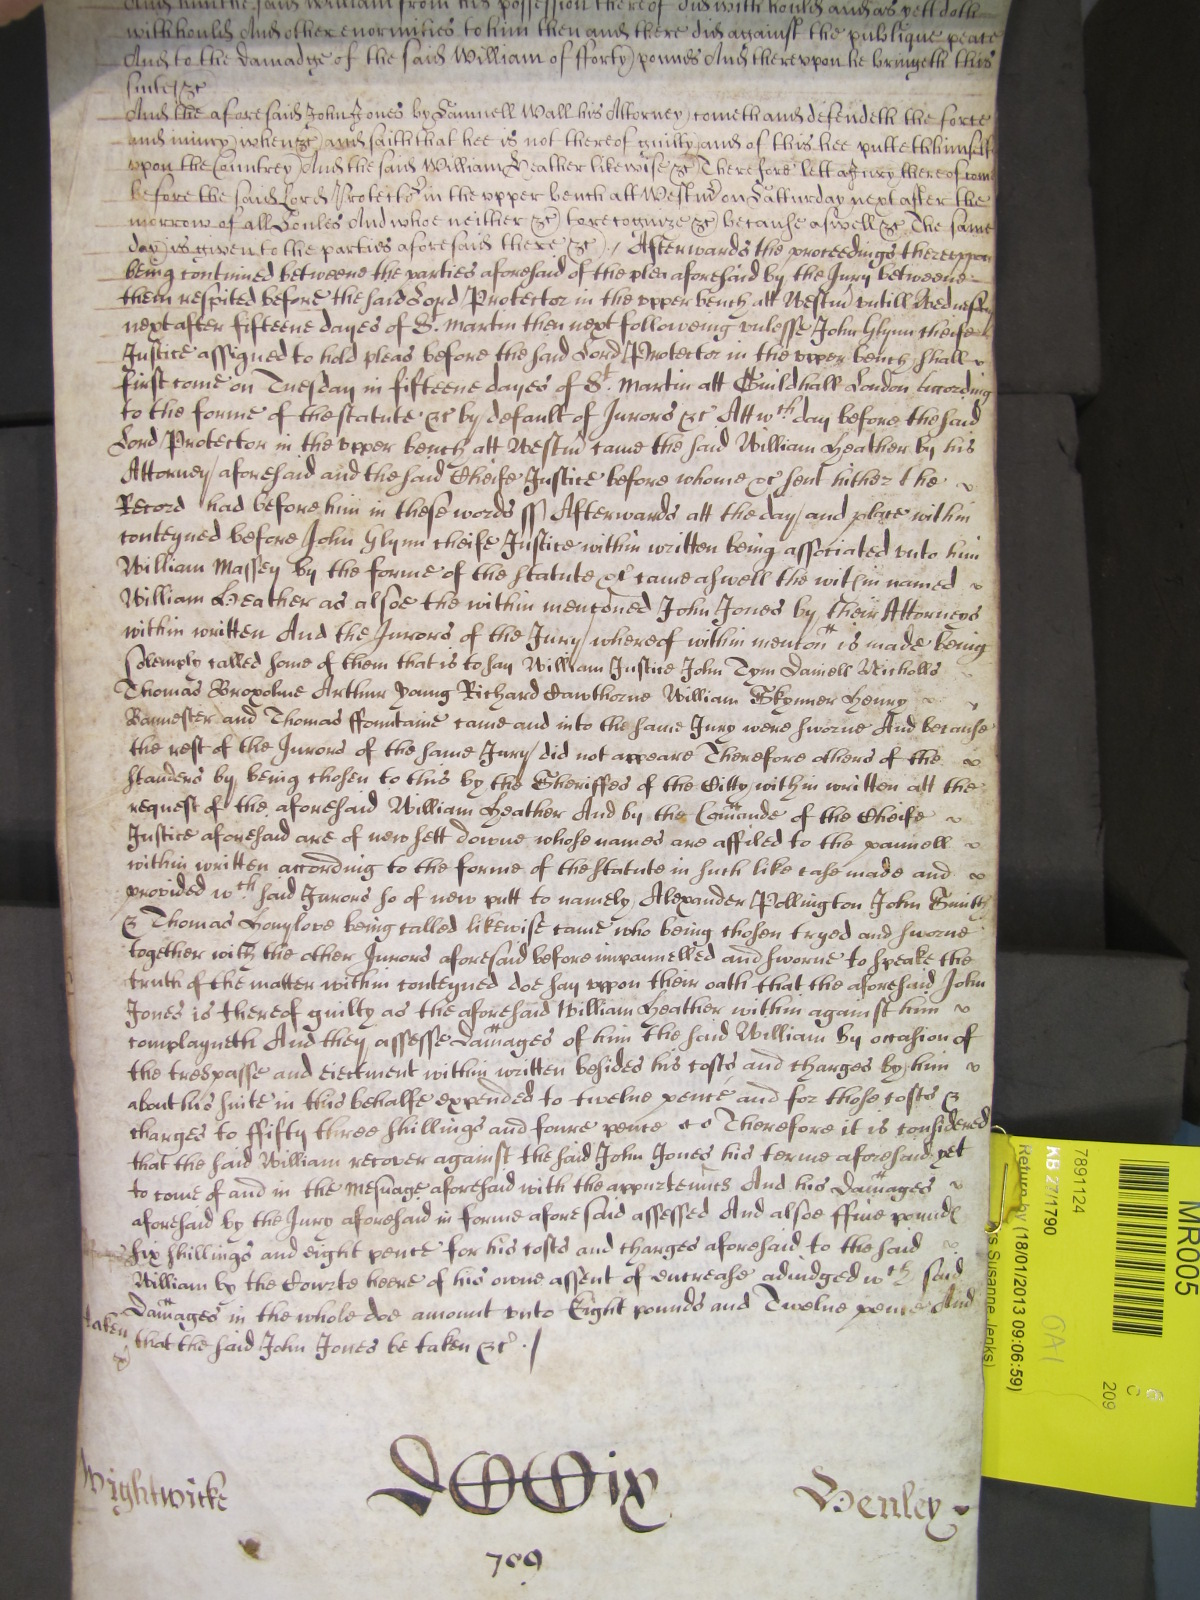 And him the said William from his possession thereof did withhould and as yett doth
withhould And other enormities to him then and there did against the publique peace
And to the damadge of the said William of fforty pounds And thereupon he bringeth this
suite &c
And the aforesaid John Jones by Samuell Wall his Attorney cometh and defendeth the force
and iniury when &c and saith that hee is not thereof guilty and of this hee putteth himself
upon the Countrey And the said William Heather likewise &c Therefore lett a Jury thereof come
before the said Lord Protector in the upper bench att Westmr on Satturday next after the
morrow of all Soules And whoe neither &c to recognize &c because aswell &c The same
day is given to the parties aforesaid there &c / Afterwards the proceedings thereupon
being continued betweene the parties aforesaid of the plea aforesaid by the Jury betweene
them respited before the said Lord Protector in the upper bench att Westmr untill Wednesday
next after fifteene dayes of St. Martin then next followeing unlesse John Glynn cheife
Justice assigned to hold pleas before the said Lord Protector in the upper bench shall
first come on Tuesday in fifteene dayes of St. Martin att Guildhall London according
to the forme of the statute &c by default of Jurors &c Att wch day before the said
Lord Protector in the upper bench att Westmr came the said William Heather by his
Attorney aforesaid and the said Cheife Justice before whome &c sent hither the
Record had before him in these words ss Afterwards att the day and place within
conteyned before John Glynn cheife Justice within written being associated unto him
William Massey by the forme of the statute &c came aswell the within named
William Heather as alsoe the within mencioned John Jones by their Attorneys
within written And the Jurors of the Jury whereof within mencon is made being
solemply called some of them that is to say William Justice John Tym Daniell Nicholls
Thomas Broxolme Arthur Young Richard Cawthorne William Skynner Henry
Bannester and Thomas ffountaine came and into the same Jury were sworne And because
the rest of the Jurors of the same Jury did not appeare Therefore others of the
standers by being chosen to this by the Sheriffes of the Citty within written att the
request of the aforesaid William Heather And by the Comande of the Cheife
Justice aforesaid are of new sett downe whose names are affiled to the pannell
within written according to the forme of the statute in such like case made and
provided wch said Jurors so of new putt to namely Alexander Pollington John Smith
& Thomas Honylove being called likewise came who being chosen tryed and sworne
together with the other Jurors aforesaid before impannelled and sworne to speake the
truth of the matter within conteyned doe say uppon their oath that the aforesaid John
Jones is thereof guilty as the aforesaid William Heather within against him
complayneth And they assesse Damages of him the said William by occasion of
the trespasse and eiectment within written besides his costs and charges by him
about his suite in this behalfe expended to twelve pence and for those costs &
charges to ffifty three shillings and foure pence &c Therefore it is considered
that the said William recover against the said John Jones his terme aforesaid yet
to come of and in the Mesuage aforesaid with the appurtences And his Damages
aforesaid by the Jury aforesaid in forme aforesaid assessed And alsoe ffive pounds
six shillings and eight pence for his costs and charges aforesaid to the said
William by the Courte heere of his owne assent of encrease adiudged wch said
Damages in the whole doe amount unto Eight pounds and Twelve pence And
taken that the said John Jones be taken &c /
Wightwicke
DCCix
Henley
709
MR005
7891124
KB 27/1790
Return by (18/01/2013 09:06:59)
Susanne Jenks)
OA1
G
C
209